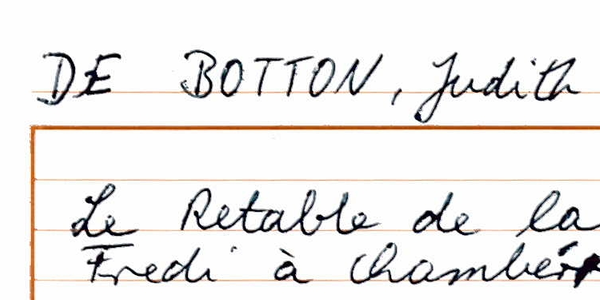 DE BOTTON, Judith
Le Retable de la
Fredi à Chambér